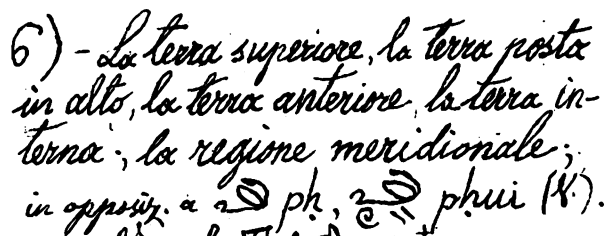 6) - La terra superiore, la terra posta
in alto, la terra anteriore, la terra in-
terna; la regione meridionale;
in opposiz. a ph, phui (V.).